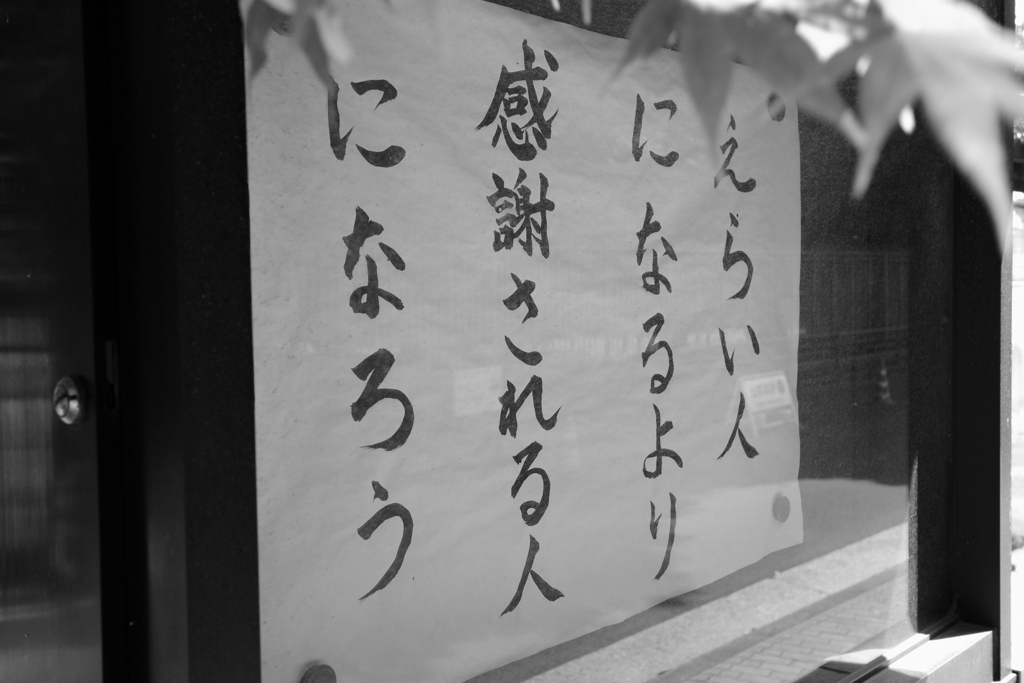 えらい人
になるより
感謝される人
になろう